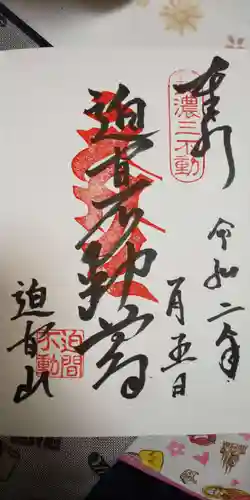 奉拝
濃三不動
令和二年
一月五日
迫間不動尊
迫間
不動
迫間山